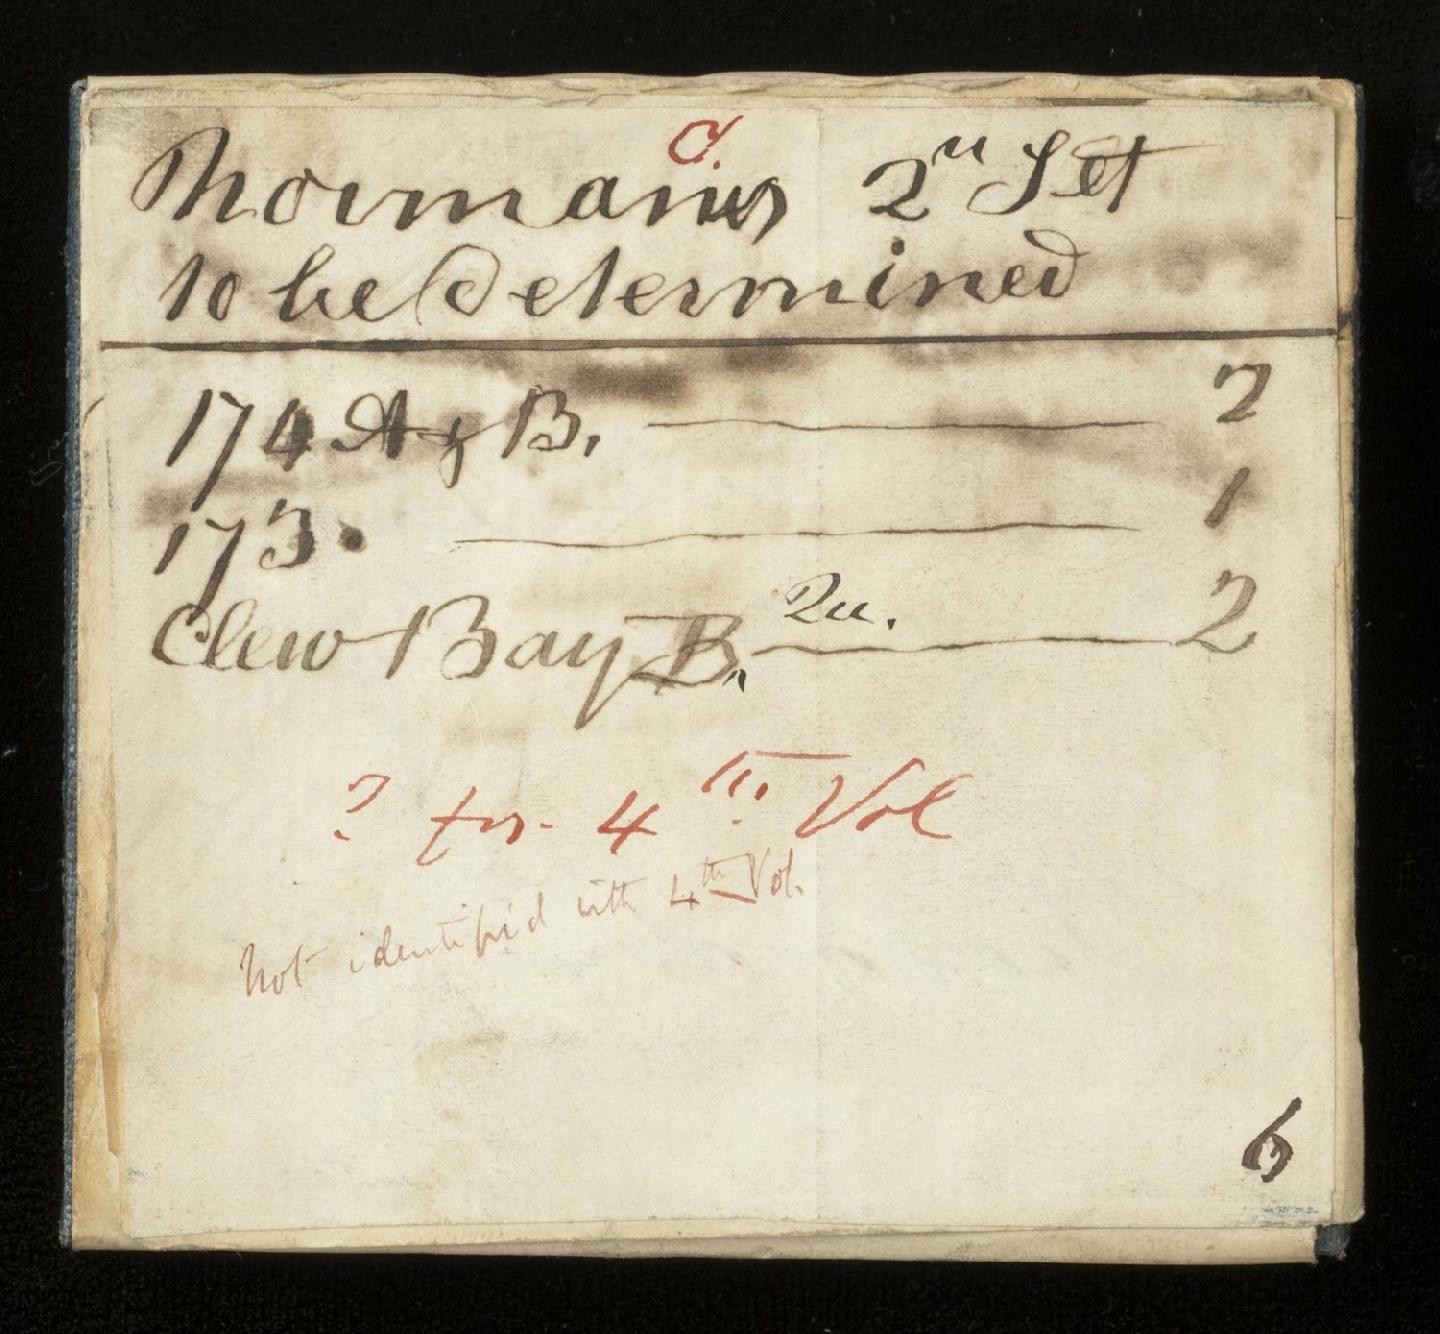 Normanus 2nd Set
to be determined
174 A & B. 2
173. 1
Clew Bay B. Qu. 2
? for 4th Vol
Not identified with 4th Vol.
6